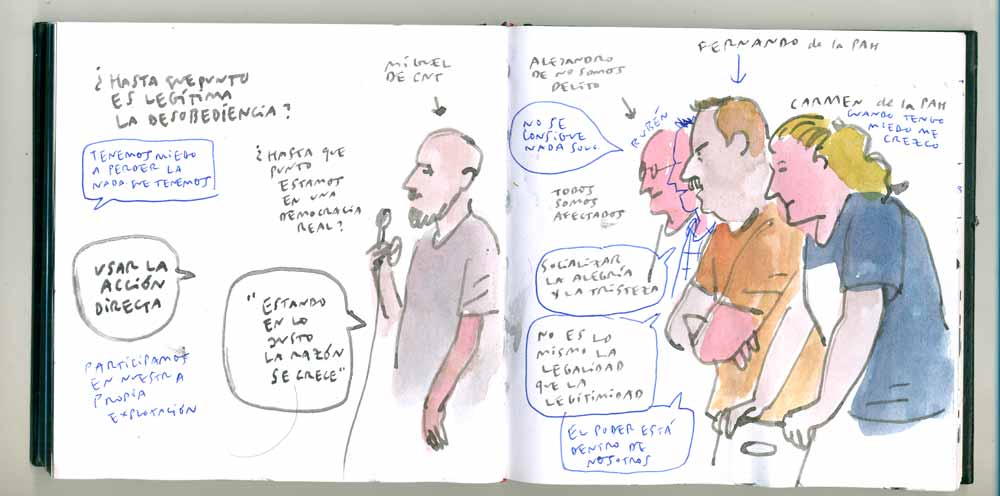 ¿HASTA QUE PUNTO
ES LEGÍTIMA
LA DESOBEDIENCIA?
TENEMOS MIEDO
A PERDER LA
NADA QUE TENEMOS
¿HASTA QUE
PUNTO
ESTAMOS
EN UNA
DEMOCRACIA
REAL?
MIGUEL
DE CNT
USAR LA
ACCIÓN
DIRECTA
"ESTANDO
EN LO
JUSTO
LA RAZÓN
SE CRECE"
PARTICIPAMOS
EN NUESTRA
PROPIA
EXPLOTACIÓN
ALEJANDRO
DE NO SOMOS
DELITO
FERNANDO de la PAH
CARMEN de la PAH
CUANDO TENGO
MIEDO ME
CREZCO
RUBÉN
NO SE
CONSIGUE
NADA SOLO
TODOS
SOMOS
AFECTADOS
SOCIALIZAR
LA ALEGRÍA
Y LA TRISTEZA
NO ES LO
MISMO LA
LEGALIDAD
QUE LA
LEGITIMIDAD
EL PODER ESTÁ
DENTRO DE
NOSOTROS